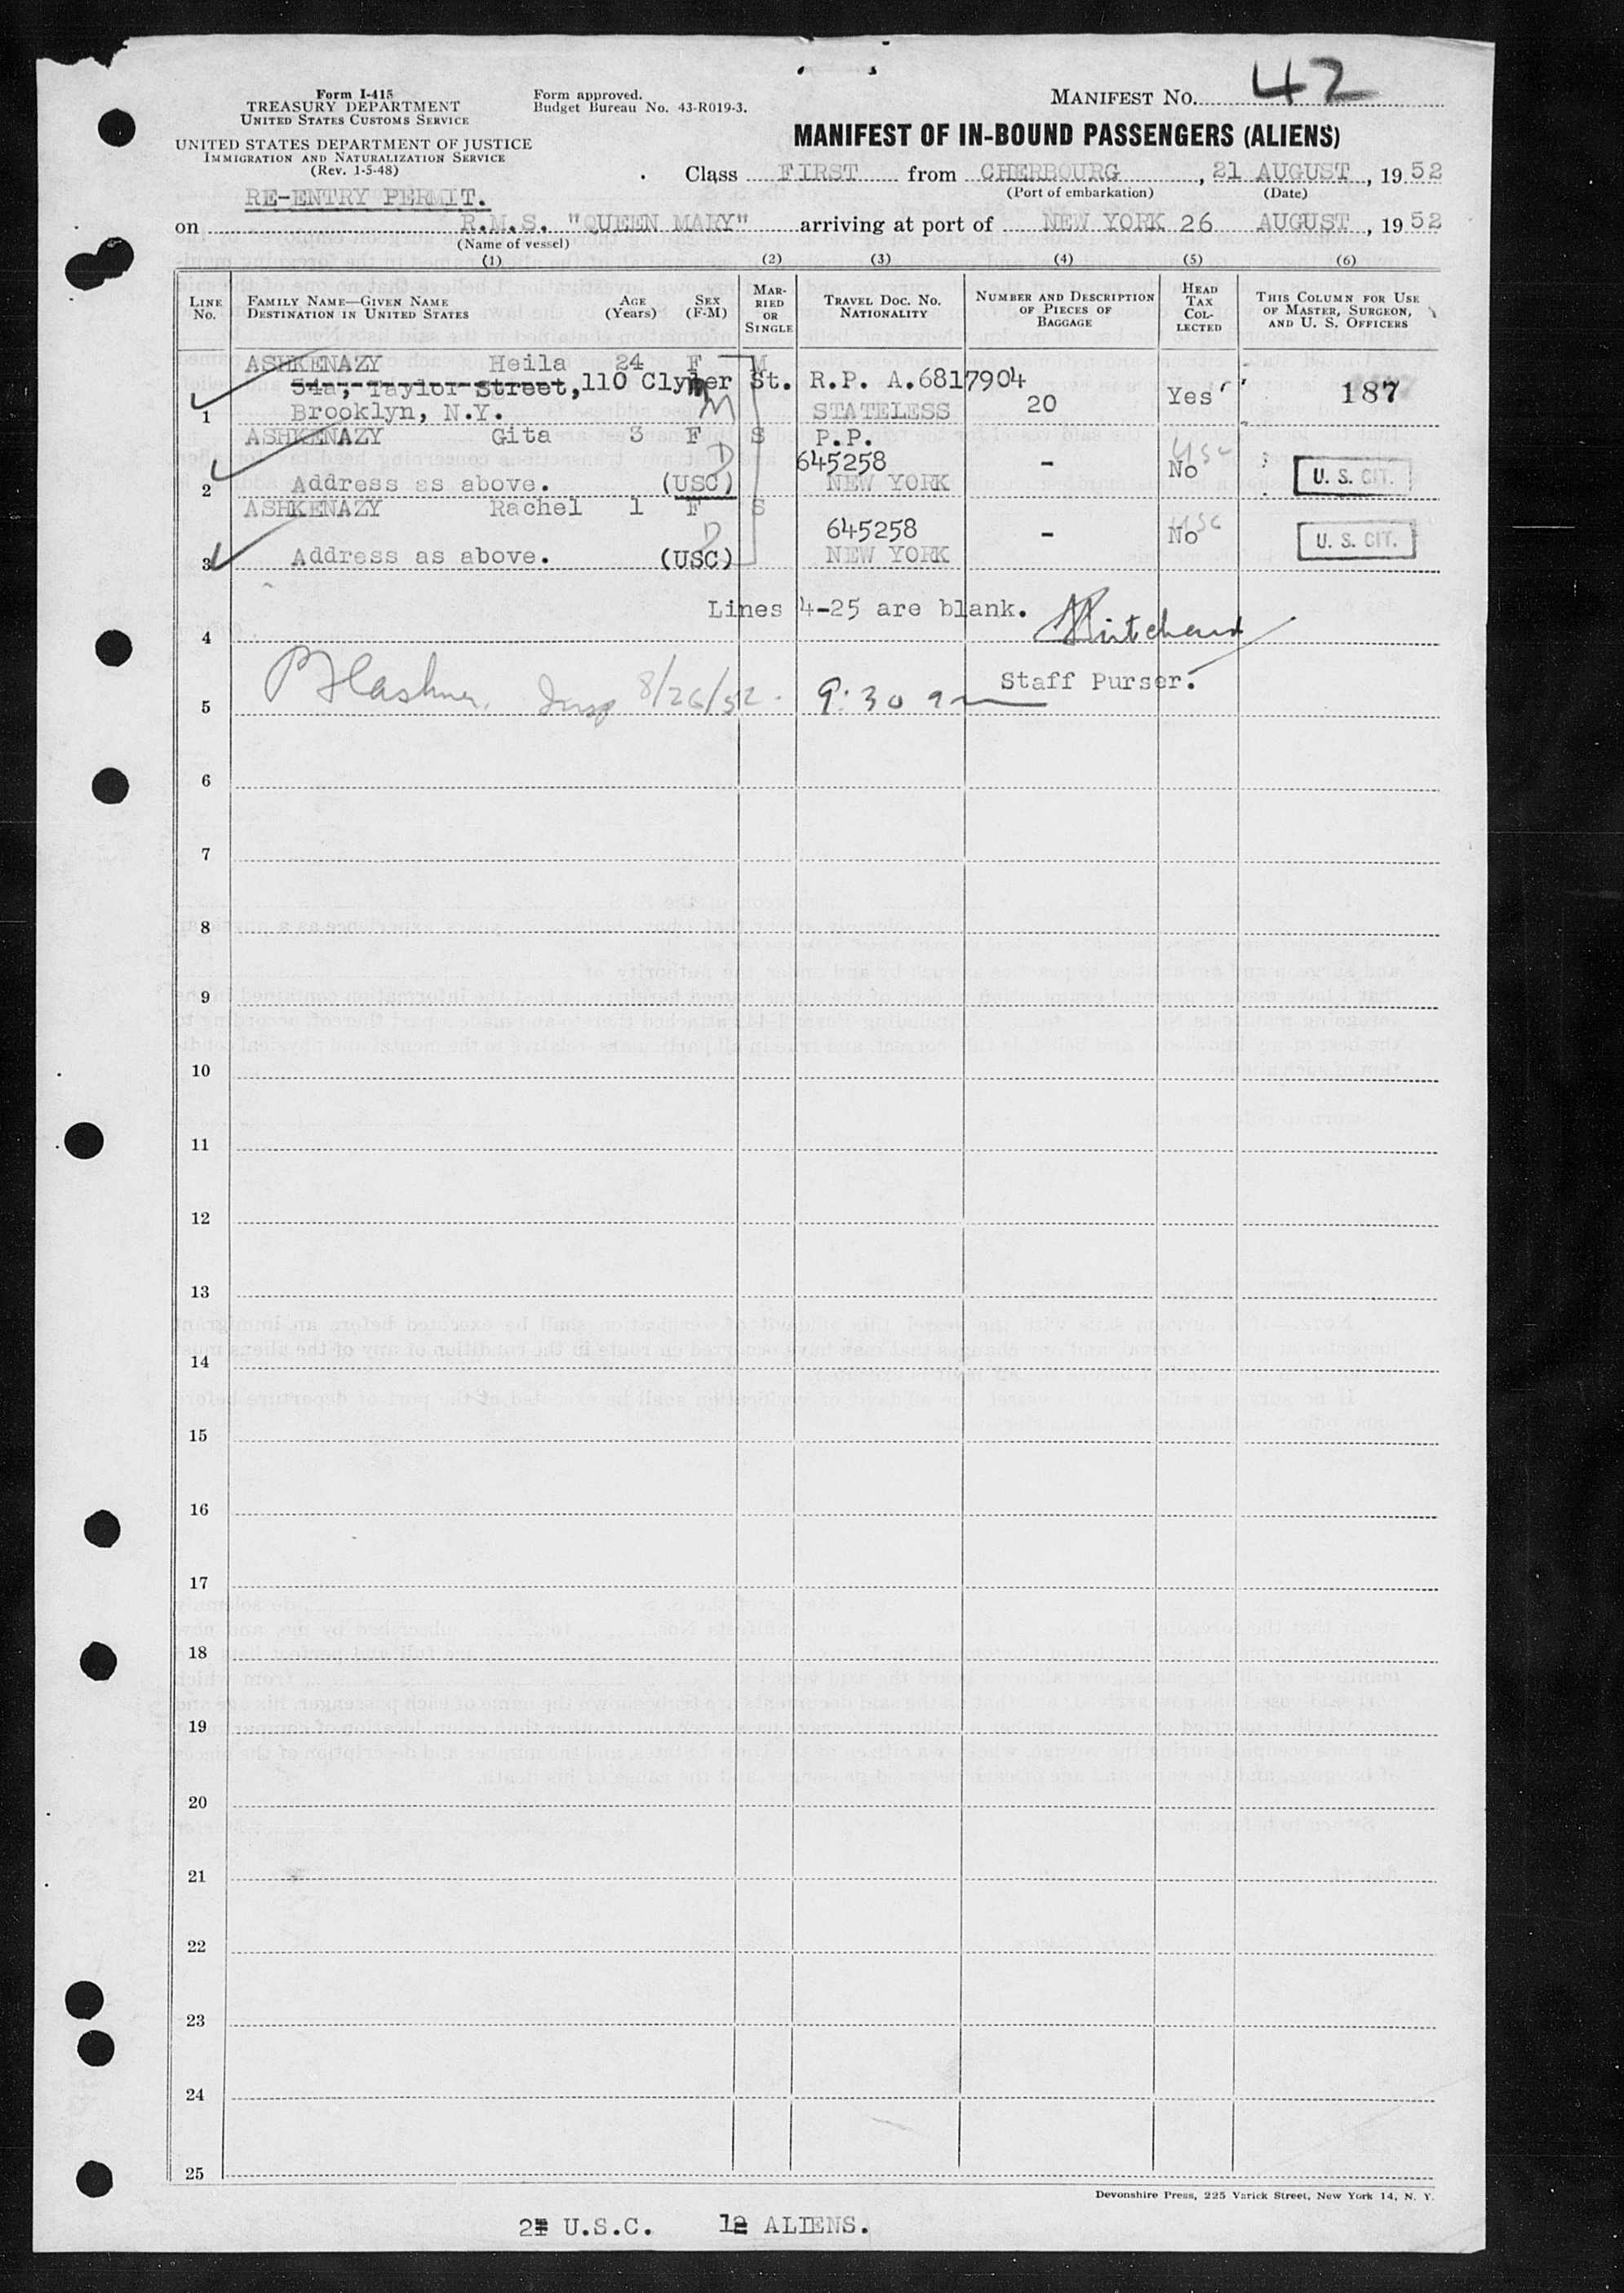 Form I-415
TREASURY DEPARTMENT
UNITED STATES CUSTOMS SERVICE
UNITED STATES DEPARTMENT OF JUSTICE
IMMIGRATION AND NATURALIZATION SERVICE
(Rev. 1-5-48)
Form approved.
Budget Bureau No. 43-R019-3.
MANIFEST NO. 42
MANIFEST OF IN-BOUND PASSENGERS (ALIENS)
Class FIRST from CHERBOURG, 21 AUGUST, 1952
(Port of embarkation) (Date)
RE-ENTRY PERMIT.
on R.M.S. "QUEEN MARY" arriving at port of NEW YORK 26 AUGUST, 1952
(Name of vessel)
(1) (2) (3) (4) (5) (6)
LINE No. FAMILY NAME—GIVEN NAME DESTINATION IN UNITED STATES AGE (Years) SEX (F-M) MARRIED OR SINGLE TRAVEL DOC. NO. NATIONALITY NUMBER AND DESCRIPTION OF PIECES OF BAGGAGE HEAD TAX COLLECTED THIS COLUMN FOR USE OF MASTER, SURGEON, AND U. S. OFFICERS
ASHKENAZY Heila 24 F M
54a, Taylor Street, 110 Clymer St. R.P. A.6817904 Yes 187
1 Brooklyn, N.Y. M STATELESS 20
ASHKENAZY Gita 3 F S P.P.
D 645258 - No USC U. S. CIT.
2 Address as above. (USC) NEW YORK
ASHKENAZY Rachel 1 F S
D 645258 - No USC U. S. CIT.
3 Address as above. (USC) NEW YORK
Lines 4-25 are blank.
4
Staff Purser.
5 Insp 8/26/52. 9:30 am
6
7
8
9
10
11
12
13
14
15
16
17
18
19
20
21
22
23
24
25
Devonshire Press, 225 Varick Street, New York 14, N. Y.
2 U.S.C. 1 ALIENS.